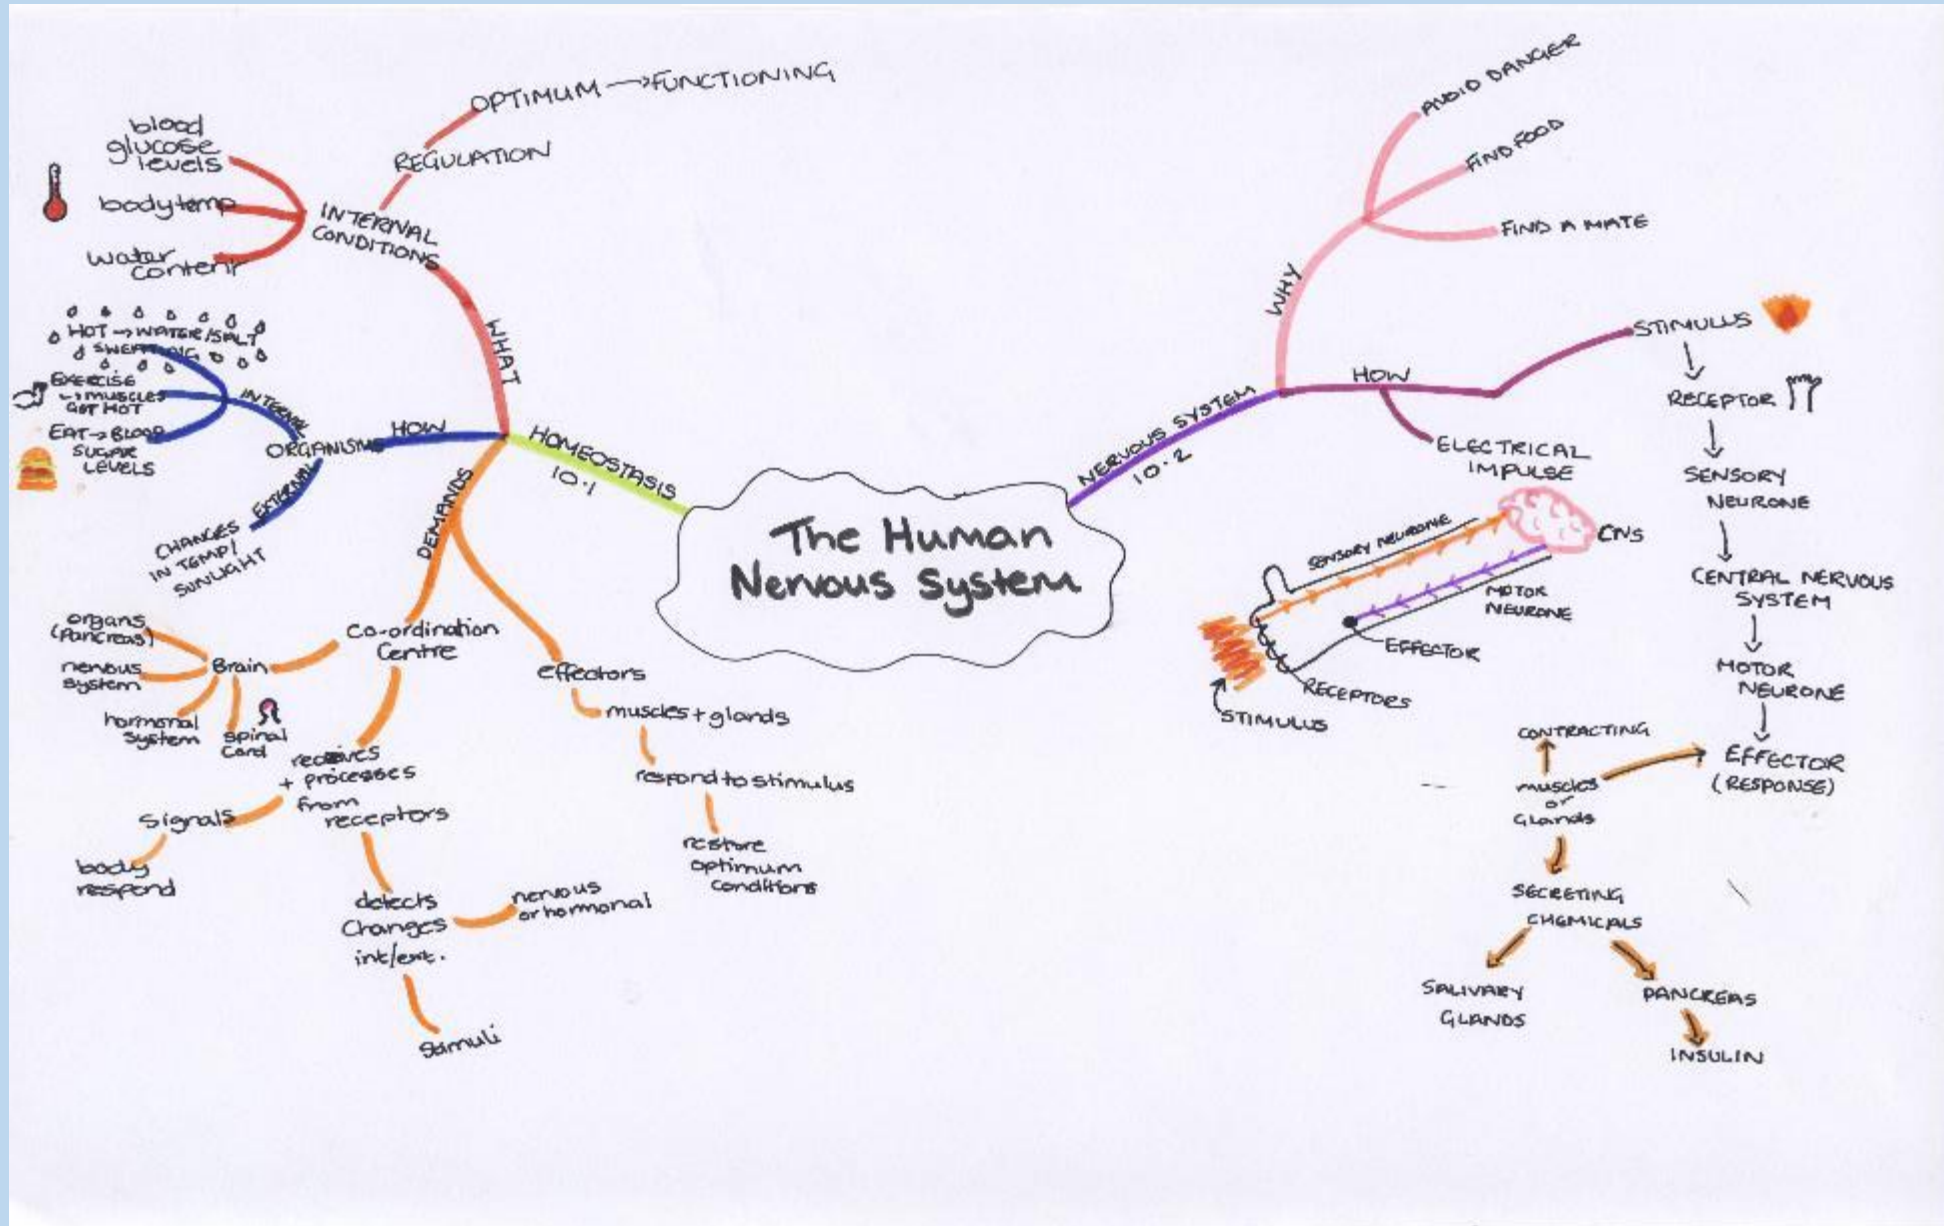 The Human
Nervous System
HOMEOSTASIS
10.1
WHAT
INTERNAL
CONDITIONS
REGULATION
OPTIMUM → FUNCTIONING
blood
glucose
levels
body temp
water
content
HOW
ORGANISMS
INTERNAL
HOT → WATER/SALT
SWEATING
EXERCISE
↳ MUSCLES
GET HOT
EAT → BLOOD
SUGAR
LEVELS
EXTERNAL
CHANGES
IN TEMP/
SUNLIGHT
DEMANDS
Co-ordination
Centre
Brain
organs
(pancreas)
nervous
system
hormonal
system
spinal
cord
receives
+ processes
from
receptors
Signals
body
respond
detects
Changes
int/ext.
nervous
or hormonal
stimuli
effectors
muscles + glands
respond to stimulus
restore
optimum
conditions
NERVOUS SYSTEM
10.2
WHY
AVOID DANGER
FIND FOOD
FIND A MATE
HOW
ELECTRICAL
IMPULSE
STIMULUS
↓
RECEPTOR
↓
SENSORY
NEURONE
↓
CENTRAL NERVOUS
SYSTEM
↓
MOTOR
NEURONE
↓
EFFECTOR
(RESPONSE)
CONTRACTING
muscles
or
Glands
SECRETING
CHEMICALS
SALIVARY
GLANDS
PANCREAS
INSULIN
SENSORY NEURONE
CNS
MOTOR
NEURONE
EFFECTOR
RECEPTORS
STIMULUS